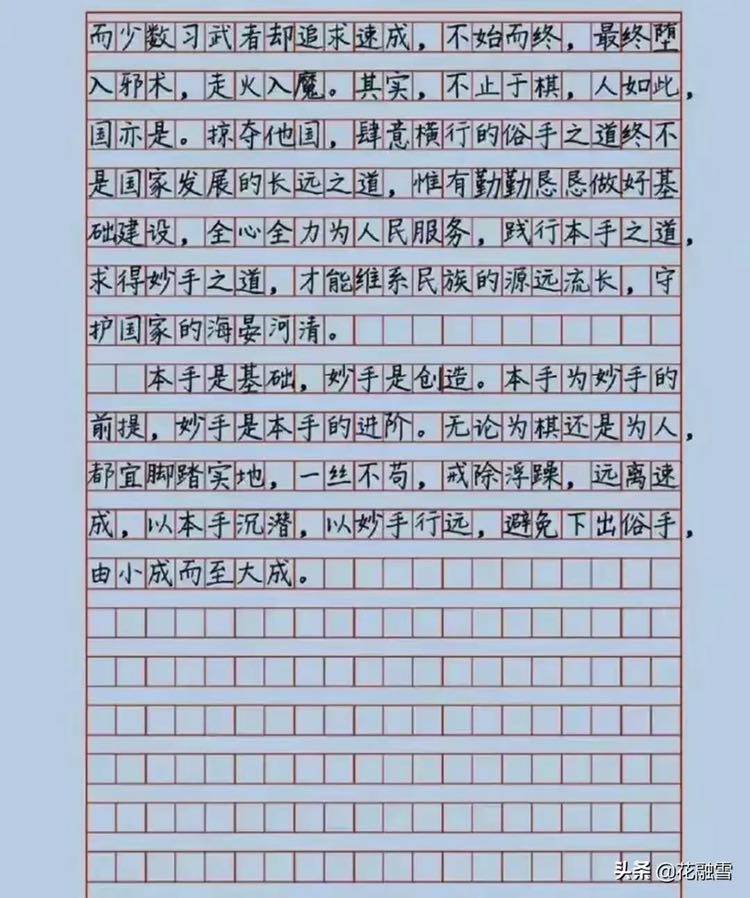 而少数习武者却追求速成，不始而终，最终堕
入邪术，走火入魔。其实，不止于棋，人如此，
国亦是。掠夺他国，肆意横行的俗手之道终不
是国家发展的长远之道，惟有勤勤恳恳做好基
础建设，全心全力为人民服务，践行本手之道，
求得妙手之道，才能维系民族的源远流长，守
护国家的海晏河清。
本手是基础，妙手是创造。本手为妙手的
前提，妙手是本手的进阶。无论为棋还是为人，
都宜脚踏实地，一丝不苟，戒除浮躁，远离速
成，以本手沉潜，以妙手行远，避免下出俗手，
由小成而至大成。
头条 @花融雪